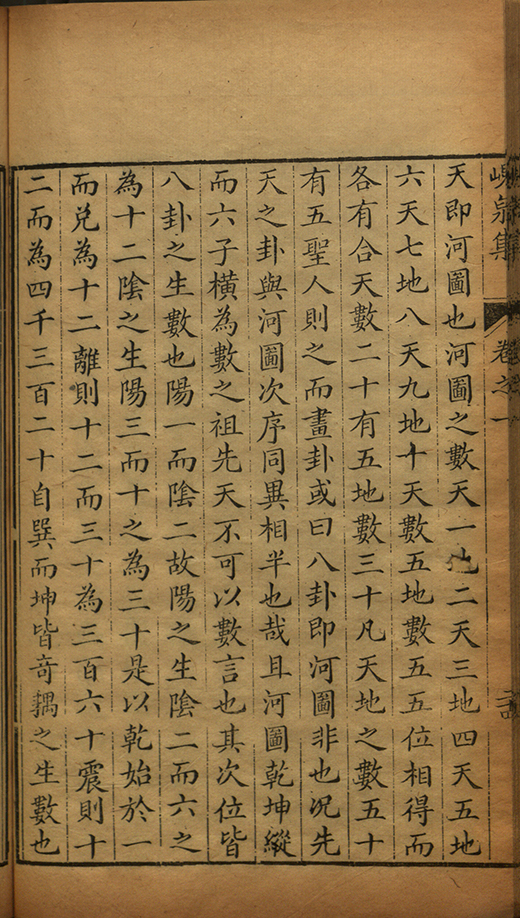 峴泉集
卷之一
天即河圖也河圖之數天一地二天三地四天五地
六天七地八天九地十天數五地數五五位相得而
各有合天數二十有五地數三十凡天地之數五十
有五聖人則之而畫卦或曰八卦即河圖非也况先
天之卦與河圖次序同異相半也哉且河圖乾坤縱
而六子橫為數之祖先天不可以數言也其次位皆
八卦之生數也陽一而陰二故陽之生陰二而六之
為十二陰之生陽三而十之為三十是以乾始於一
而兌為十二離則十二而三十為三百六十震則十
二而為四千三百二十自巽而坤皆奇耦之生數也